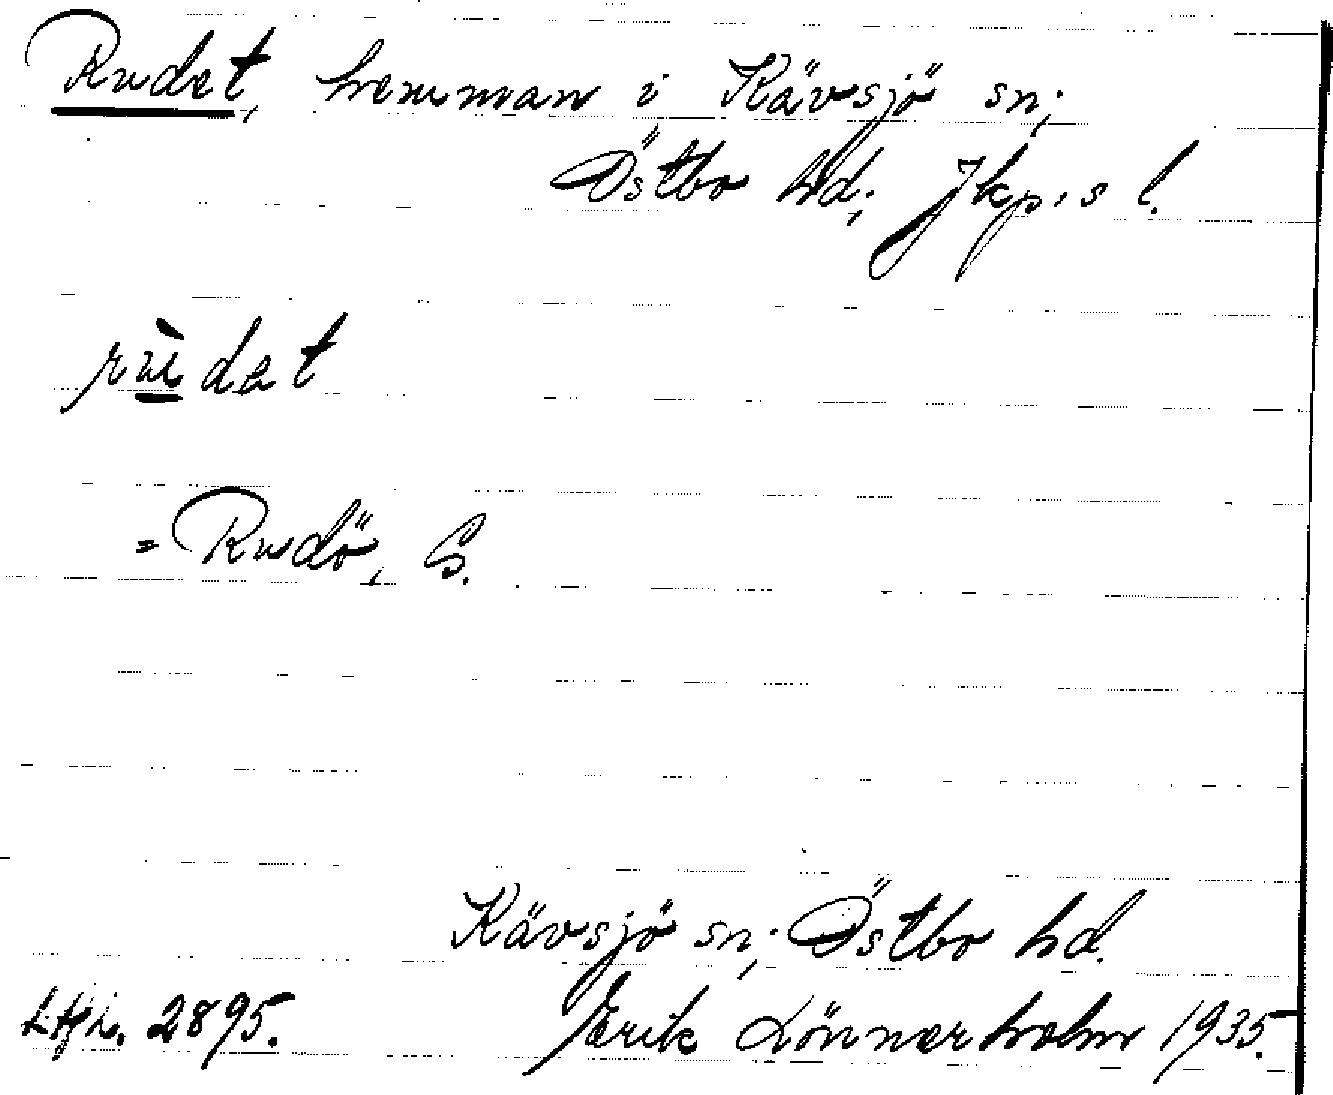 Rudet, hemman i Kävsjö sn;
Östbo hd; Jkp:s l.
rùdet
= Rudö, G.
Kävsjö sn; Östbo hd.
2895. Erik Lönnerholm 1935.